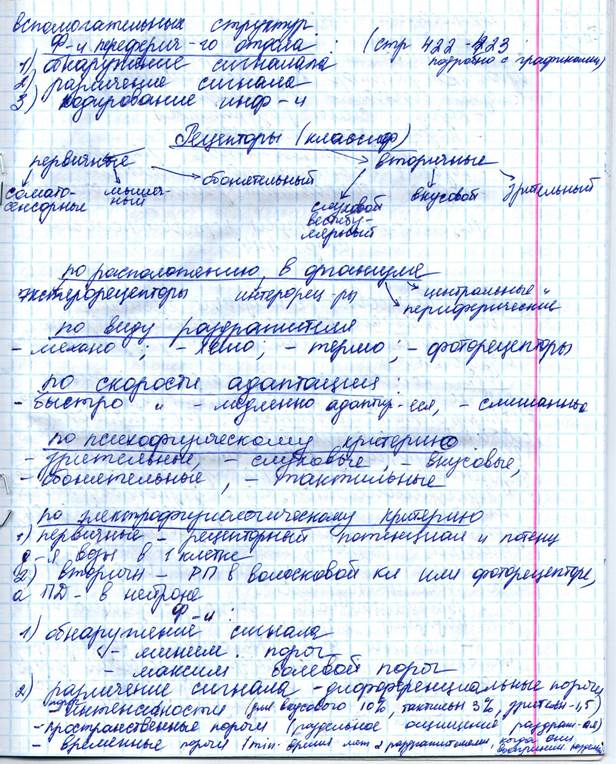 вспомогательных структур.
Ф-и переферич-го отдела: (стр 422-423
1) обнаружение сигналала подробно с графиками)
2) различение сигнала
3) кодирование инф-и
Рецепторы (классиф)
первичные вторичные
обонятельный
сомато- мышеч- вкусовой зрительный
сенсорные ный слуховой
вестибу-
лярный
по расположению в организме
экстерорецепторы интерорец-ры центральные и
периферические
по виду раздражителя
- механо; - хемо; - термо; - фоторецепторы
по скорости адаптации:
- быстро - медленно адаптир-еся, - смешанные
по психофизическому критерию
- зрительные, - слуховые, - вкусовые,
- обонятельные, - тактильные
по электрофизиологическому критерию
1) первичные - рецепторный потенциал и потенц
д-я в 1 клетке
2) вторичн - РП в волосковой кл или фоторецепторе,
а ПД - в нейроне
Ф-и:
1) обнаружение сигнала
- миним. порог
- максим болевой порог
2) различение сигнала - дифференциальные пороги
- интенсивности (для вкусового 10%, тактильн 3%, зрительн-1,5)
- пространственные пороги (раздельное ощущение раздраж-ля)
- временные пороги (min. время меж 2 раздражителями, когда они